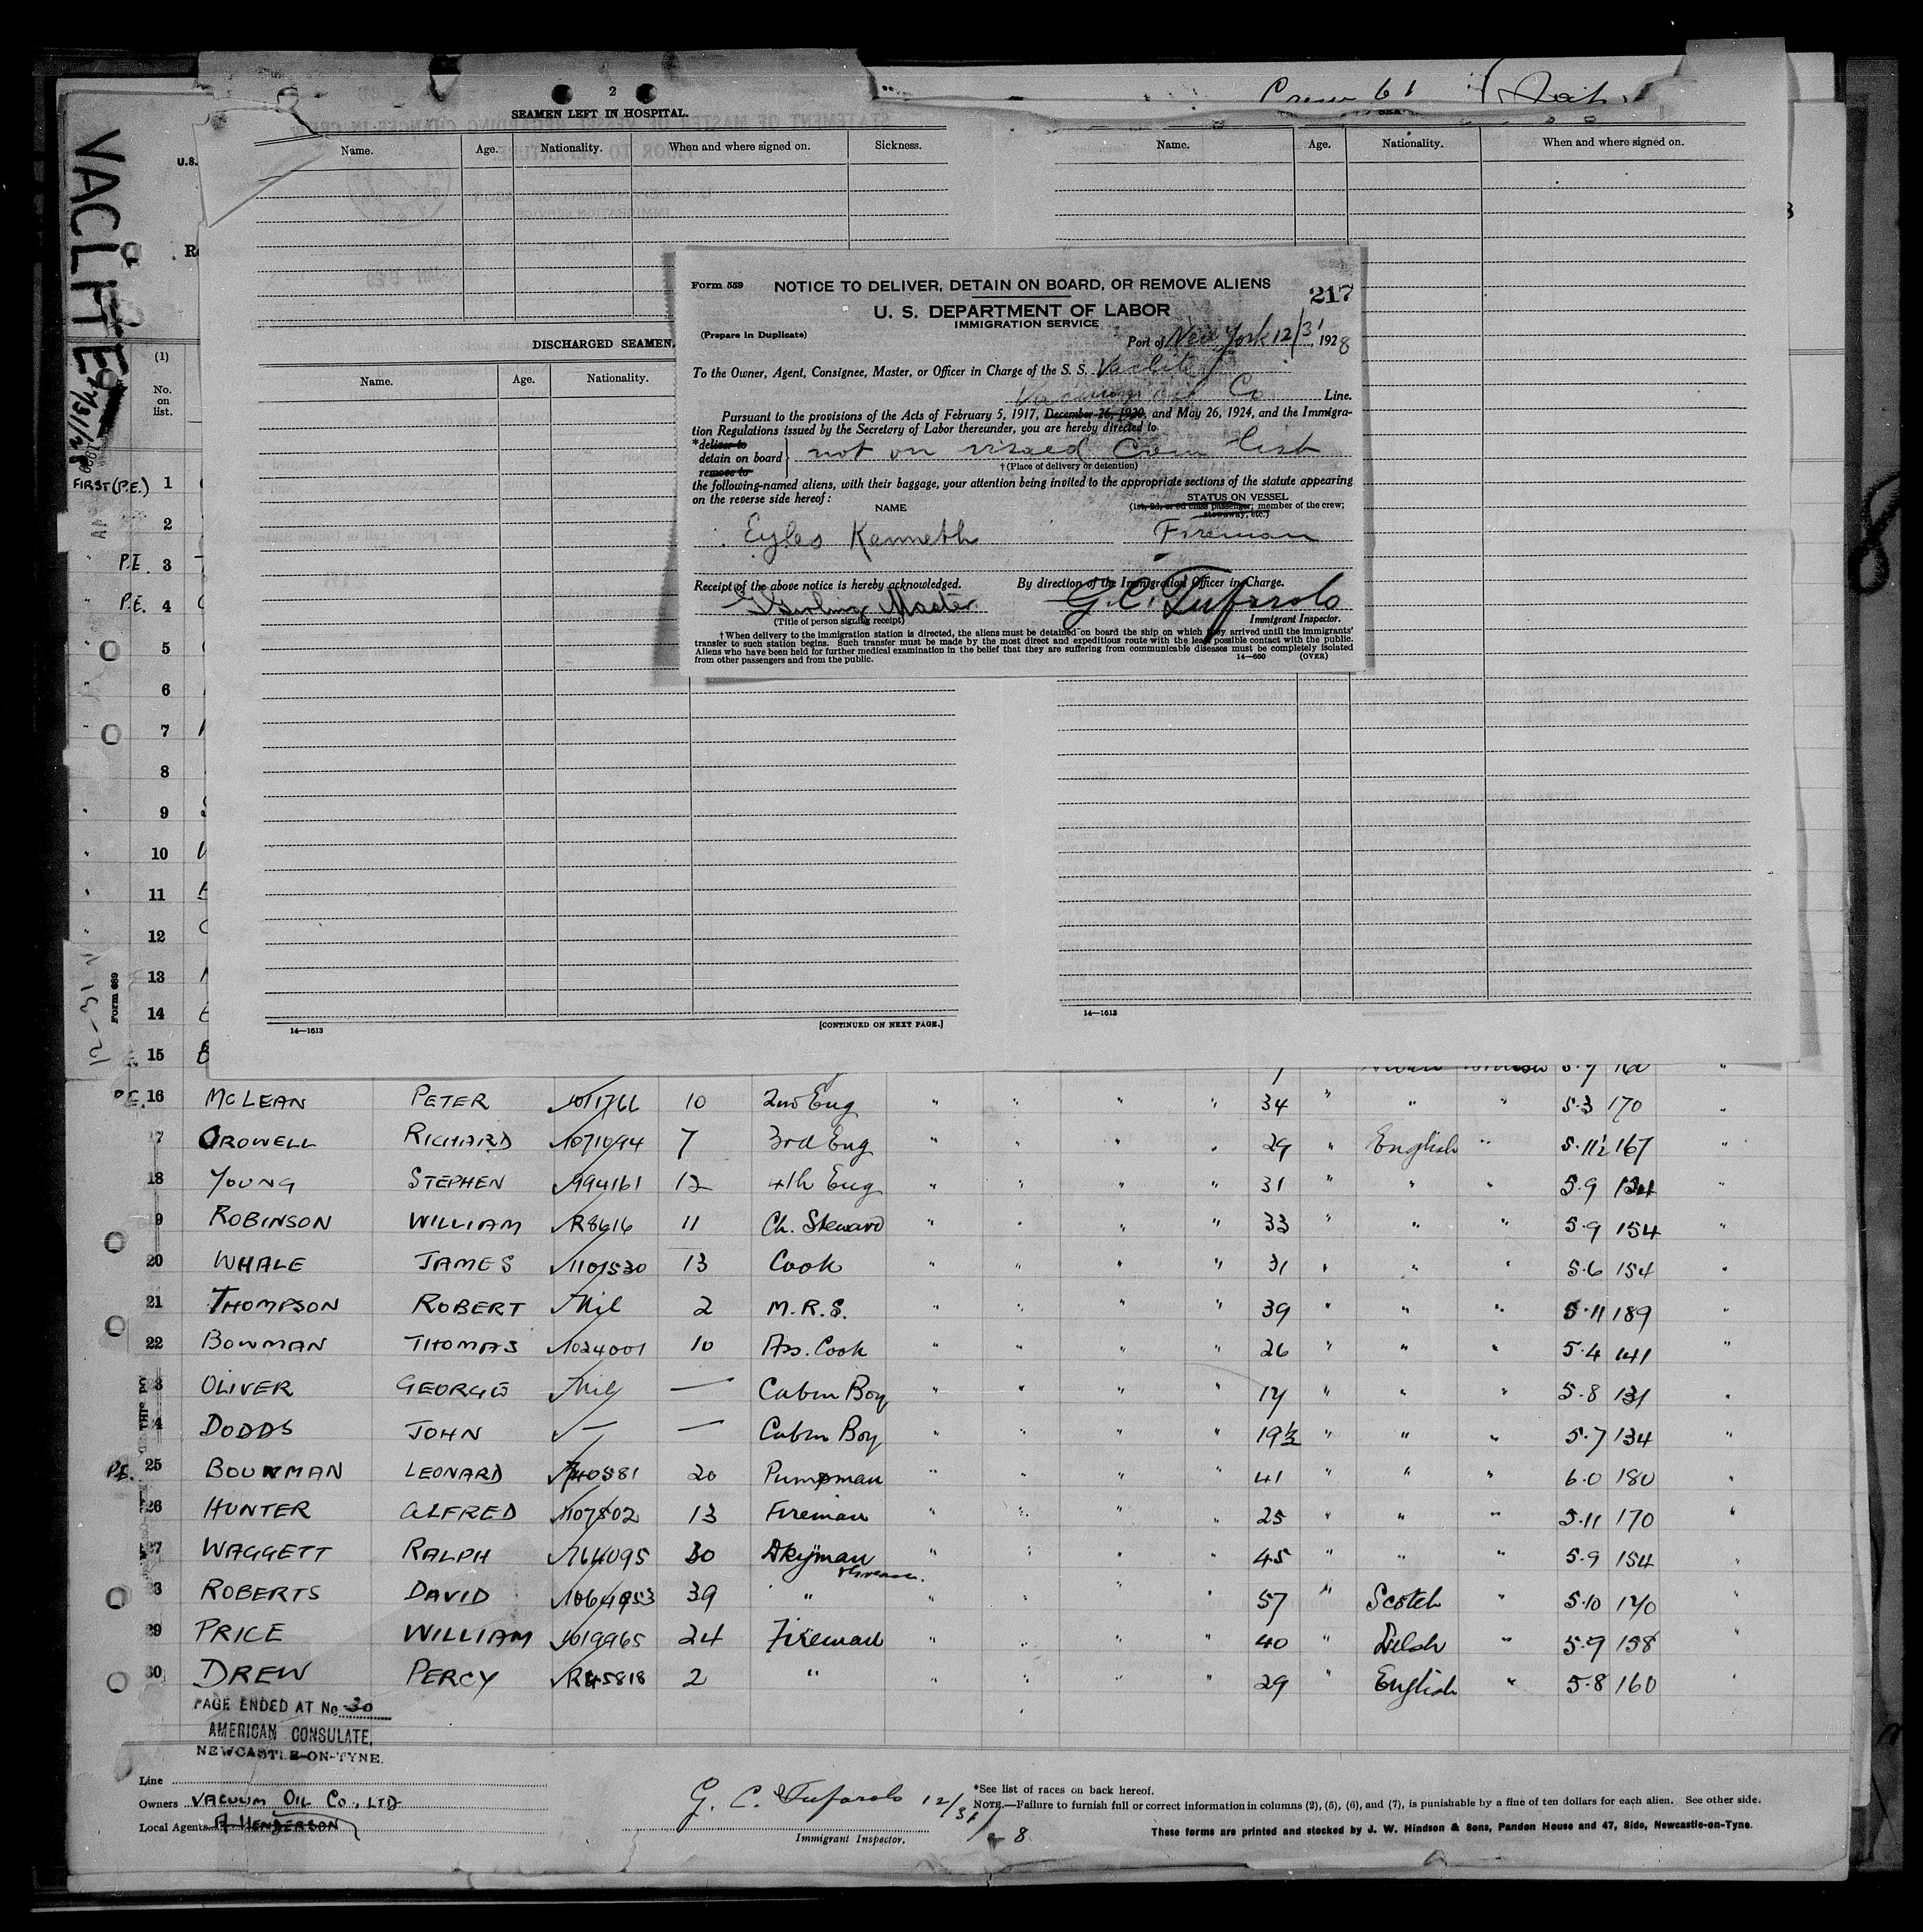 VACLITE
12/31/28
U.S.
Crew 61
2
SEAMEN LEFT IN HOSPITAL.
Name. Age. Nationality. When and where signed on. Sickness.
Name. Age. Nationality. When and where signed on.
DISCHARGED SEAMEN.
Name. Age. Nationality.
Form 559 NOTICE TO DELIVER, DETAIN ON BOARD, OR REMOVE ALIENS
217
U. S. DEPARTMENT OF LABOR
IMMIGRATION SERVICE
(Prepare in Duplicate)
Port of New York 12/31, 1928
To the Owner, Agent, Consignee, Master, or Officer in Charge of the S. S. Vaclite
Vacuum Oil Co Line.
Pursuant to the provisions of the Acts of February 5, 1917, December 26, 1920, and May 26, 1924, and the Immigra-
tion Regulations issued by the Secretary of Labor thereunder, you are hereby directed to
*deliver to
detain on board } not on visaed Crew list
remove to
†(Place of delivery or detention)
the following-named aliens, with their baggage, your attention being invited to the appropriate sections of the statute appearing
on the reverse side hereof:
STATUS ON VESSEL
NAME (1st, 2d, or 3d class passenger; member of the crew;
stowaway, etc.)
Eyles Kenneth Fireman
Receipt of the above notice is hereby acknowledged. By direction of the Immigration Officer in Charge.
Master G. C. Tufarolo
(Title of person signing receipt) Immigrant Inspector.
†When delivery to the immigration station is directed, the aliens must be detained on board the ship on which they arrived until the immigrants'
transfer to such station begins. Such transfer must be made by the most direct and expeditious route with the least possible contact with the public.
Aliens who have been held for further medical examination in the belief that they are suffering from communicable diseases must be completely isolated
from other passengers and from the public. 14—660 (OVER)
(1)
No.
on
list.
FIRST (P.E.) 1
2
P.E. 3
P.E. 4
5
6
7
8
9
10
11
12
13
14
15
Form 689
12-31
14—1613 [CONTINUED ON NEXT PAGE.]
14—1613
P.E. 16 McLEAN PETER 1011766 10 2nd Eng " " " " 34 " " " 5.3 170 "
17 CROWELL RICHARD 1071094 7 3rd Eng " " " " 29 " English " 5.11½ 167 "
18 YOUNG STEPHEN 994161 12 4th Eng " " " " 31 " " " 5.9 134 "
19 ROBINSON WILLIAM R8616 11 Ch. Steward " " " " 33 " " " 5.9 154 "
20 WHALE JAMES 1101530 13 Cook " " " " 31 " " " 5.6 154 "
21 THOMPSON ROBERT Nil 2 M.R.S. " " " " 39 " " " 5.11 189 "
22 BOWMAN THOMAS 1024001 10 Ass. Cook " " " " 26 " " " 5.4 141 "
23 OLIVER GEORGE Nil — Cabin Boy " " " " 17 " " " 5.8 131 "
24 DODDS JOHN — — Cabin Boy " " " " 19½ " " " 5.7 134 "
P.E. 25 BOWMAN LEONARD 740581 20 Pumpman " " " " 41 " " " 6.0 180 "
26 HUNTER ALFRED 1107802 13 Fireman " " " " 25 " " " 5.11 170 "
27 WAGGETT RALPH 764095 30 Dkyman " " " " 45 " " " 5.9 154 "
Fireman.
28 ROBERTS DAVID 1064953 39 " " " " " 57 " Scotch " 5.10 170 "
29 PRICE WILLIAM 1019965 24 Fireman " " " " 40 " Welsh " 5.9 158 "
30 DREW PERCY R45818 2 " " " " " 29 " English " 5.8 160 "
PAGE ENDED AT No 30
AMERICAN CONSULATE,
NEWCASTLE-ON-TYNE.
Line
Owners VACUUM OIL Co., LTD
Local Agents A HENDERSON
G. C. Tufarolo 12/31/28
Immigrant Inspector.
*See list of races on back hereof.
NOTE.—Failure to furnish full or correct information in columns (2), (5), (6), and (7), is punishable by a fine of ten dollars for each alien. See other side.
These forms are printed and stocked by J. W. Hindson & Sons, Pandon House and 47, Side, Newcastle-on-Tyne.